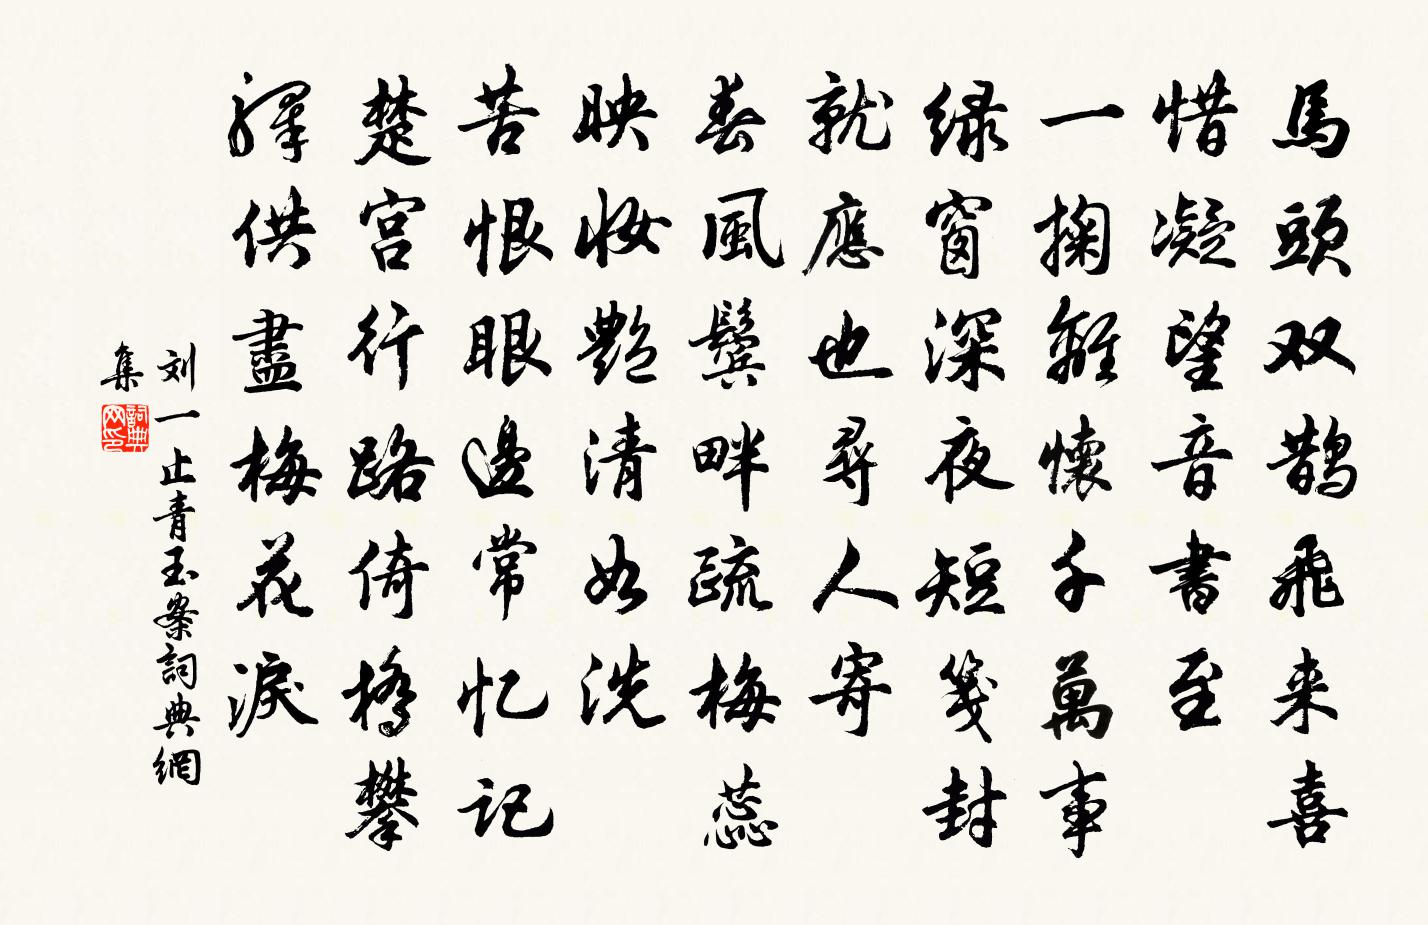 馬頭双鵲飛来喜
惜凝望音書至
一掬離懷千萬事
绿窗深夜短箋封
就應也尋人寄
春風鬓畔疏梅蕊
映妆艷清如洗
苦恨眼邊常忆記
楚宫行路倚橋攀
驛供盡梅花淚
刘一止青玉案詞典網
集
詞典网印